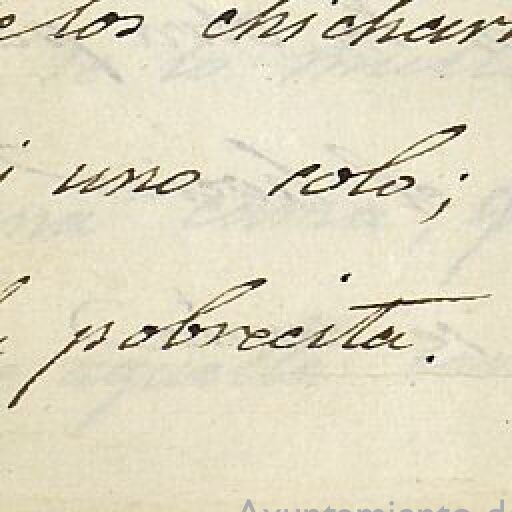 los chichar
uno solo;
pobrecita.
Ayuntamiento d